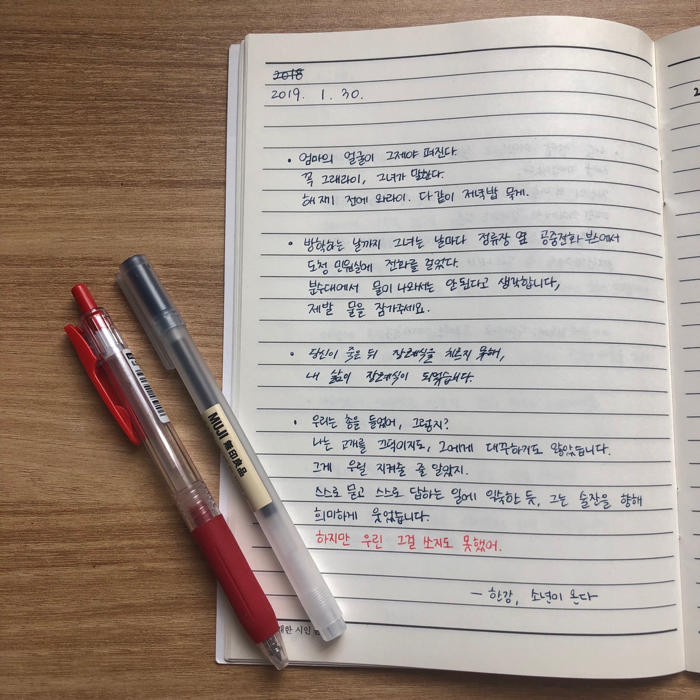 2018
2019. 1. 30.
• 엄마의 얼굴이 그제야 펴진다.
꼭 그래라이, 그녀가 말한다.
해 지기 전에 와라이. 다 같이 저녁밥 묵게.
• 방학하는 날까지 그녀는 날마다 정류장 옆 공중전화 부스에서
도청 민원실에 전화를 걸었다.
분수대에서 물이 나와서는 안 된다고 생각합니다,
제발 물을 잠가주세요.
• 당신이 죽은 뒤 장례식을 치르지 못해,
내 삶이 장례식이 되었습니다.
• 우리는 총을 들었어, 그렇지?
나는 고개를 끄덕이지도, 그에게 대꾸하지도 않았습니다.
그게 우릴 지켜줄 줄 알았지.
스스로 묻고 스스로 답하는 일에 익숙한 듯, 그는 술잔을 향해
희미하게 웃었습니다.
하지만 우린 그걸 쏘지도 못했어.
— 한강, 소년이 온다
시인
MUJI 無印良品